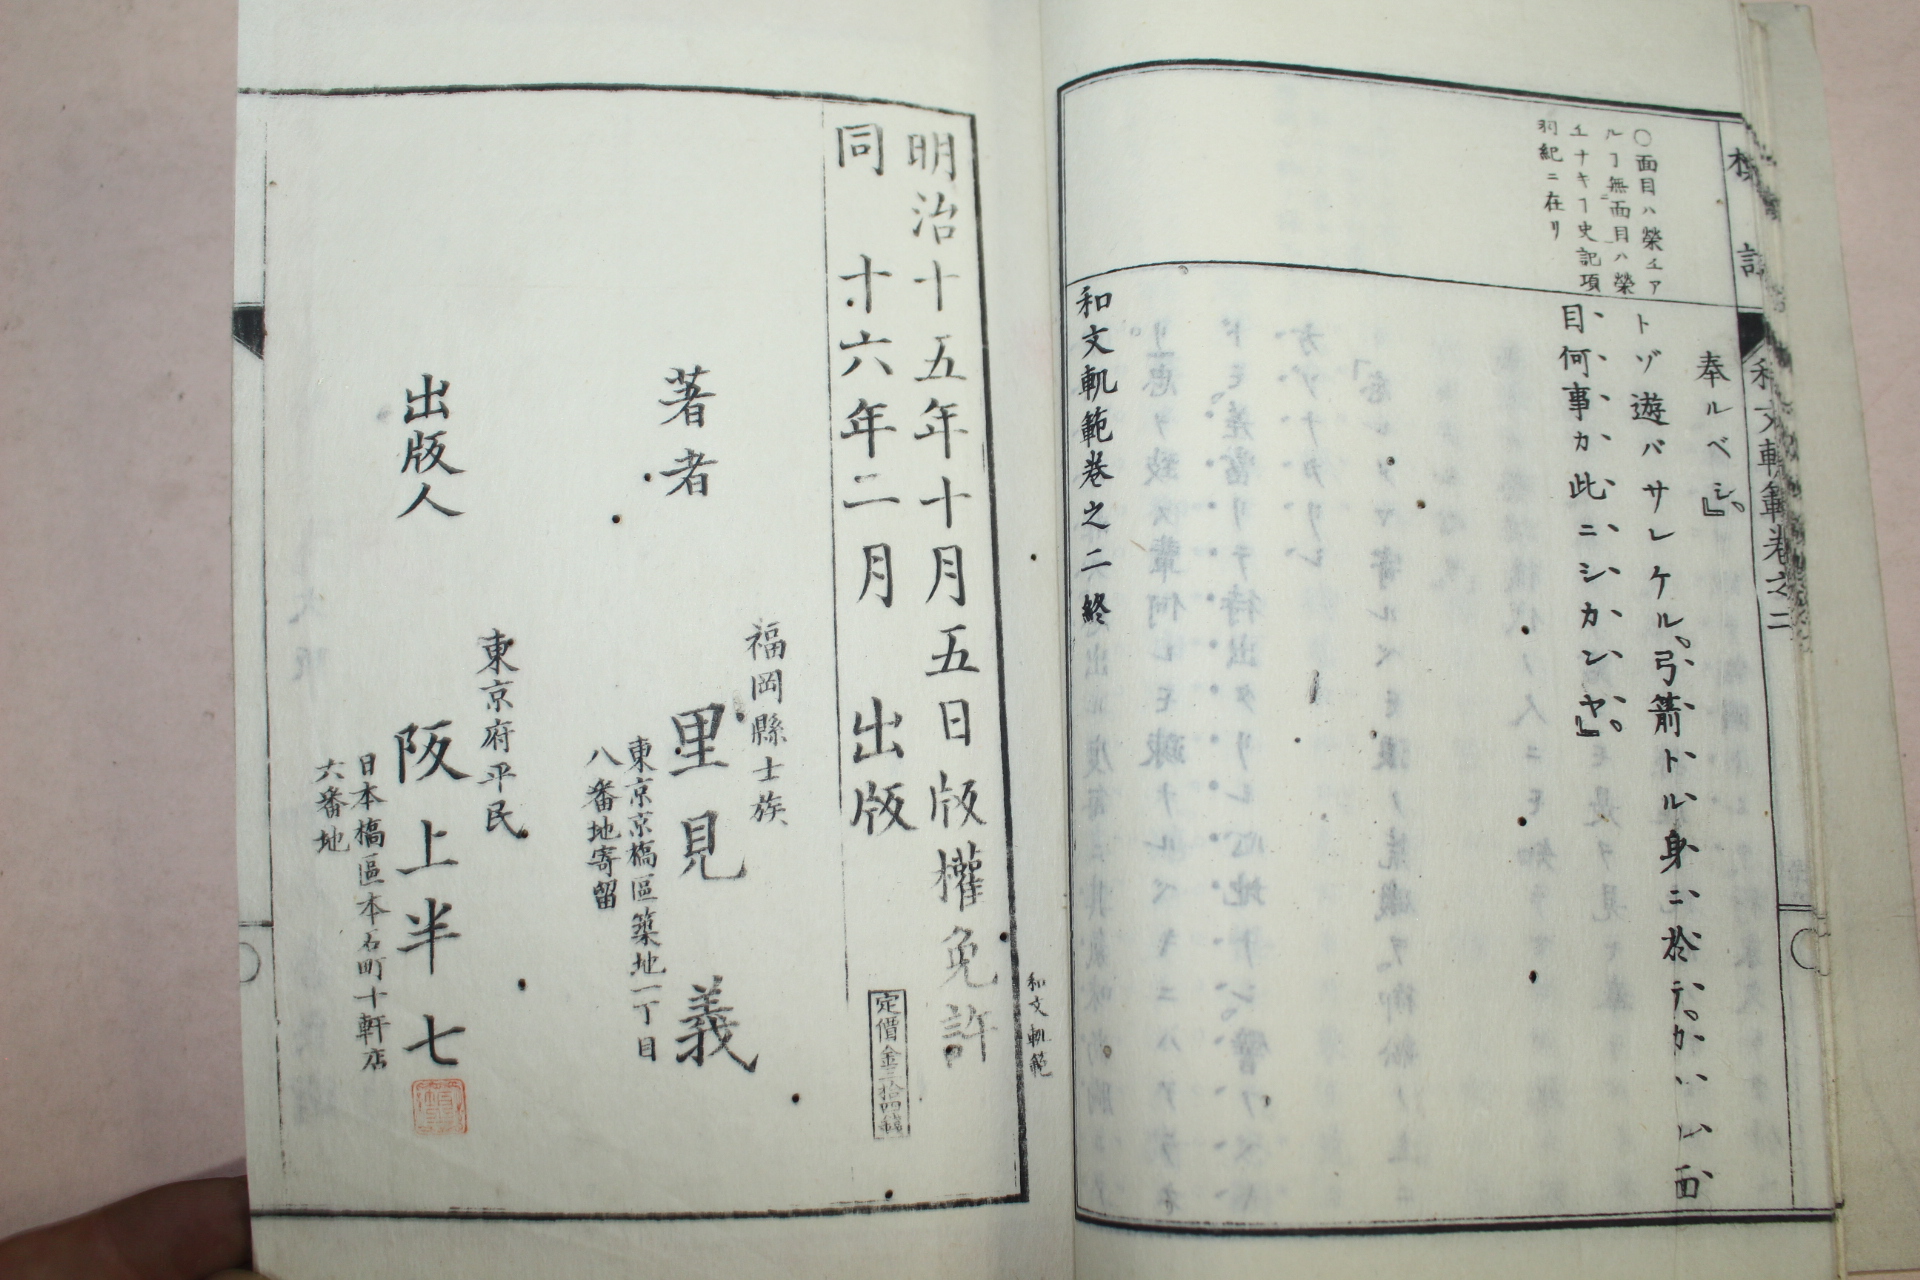 和文軌範卷之二
標註
○面目ハ榮エア
ルヿ無面目ハ榮
エナキヿ史記項
羽紀ニ在リ
奉ルベシ。』
トゾ遊バサレケル。弓箭トル身ニ於テ。カヽル面
目何事カ此ニシカンヤ。』
和文軌範卷之二終
和文軌範
明治十五年十月五日版權免許
同 十六年二月 出版
定價金三拾四錢
福岡縣士族
著者 里見 義
東京京橋區築地一丁目
八番地寄留
東京府平民
出版人 阪上半七
日本橋區本石町十軒店
六番地